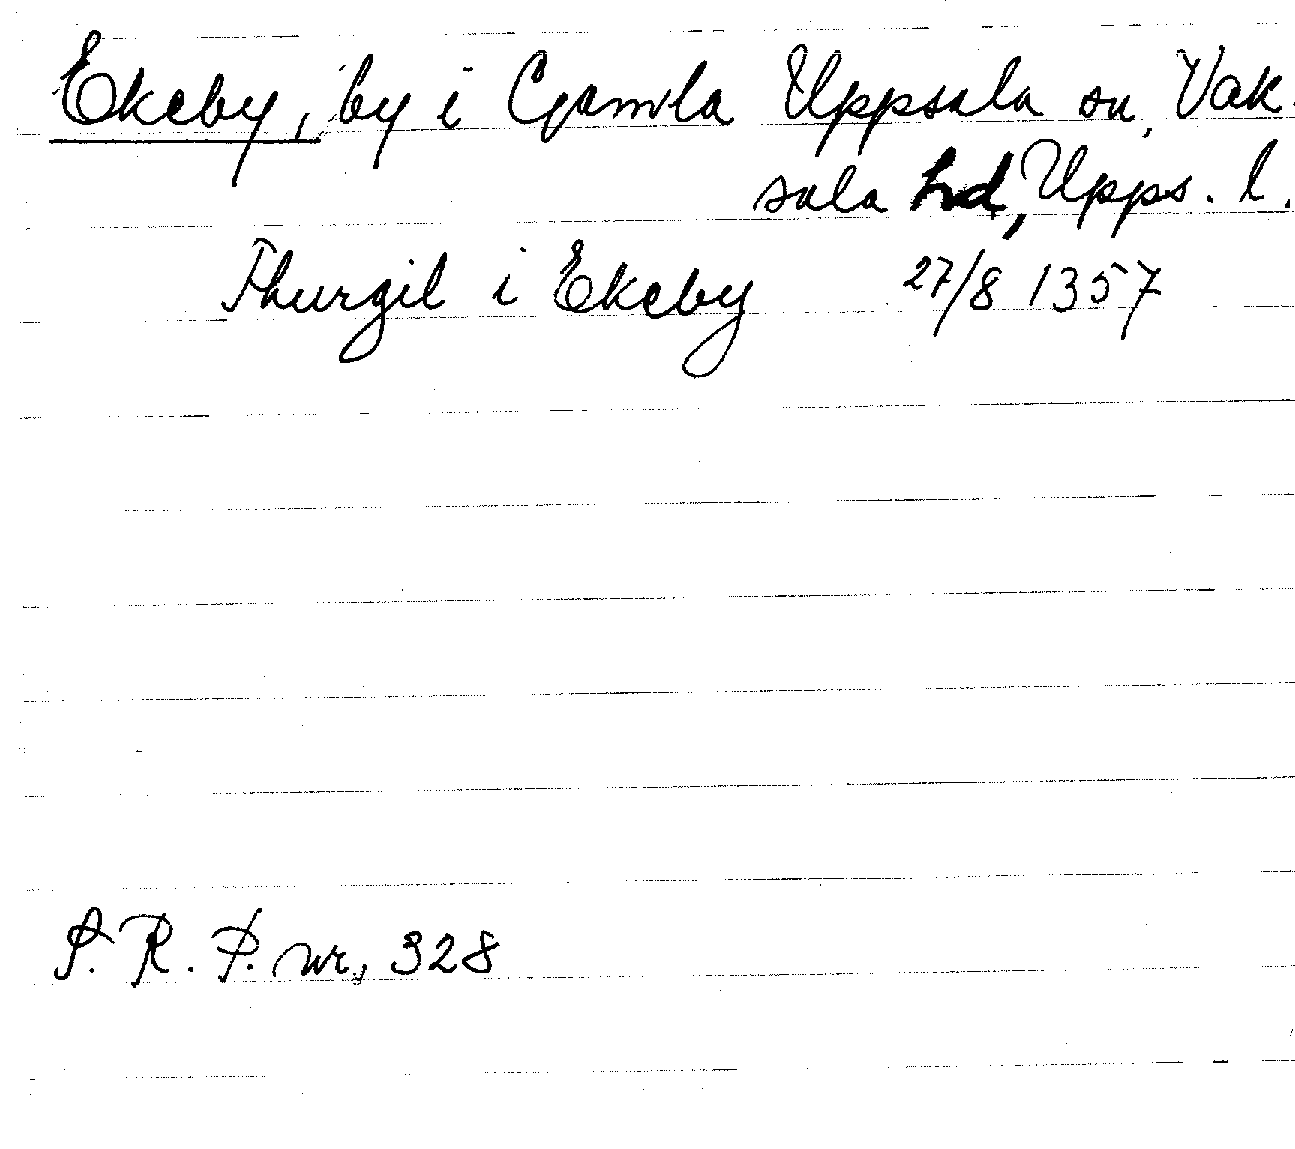 Ekeby, by i Gamla Uppsala sn, Vak-
sala hd, Upps. l.
Thurgil i Ekeby 27/8 1357
S. R. P. nr, 328